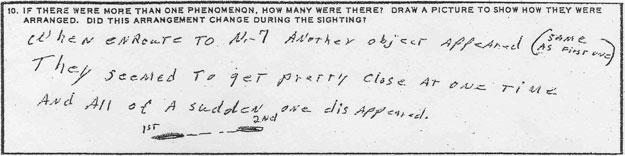 10. IF THERE WERE MORE THAN ONE PHENOMENON, HOW MANY WERE THERE? DRAW A PICTURE TO SHOW HOW THEY WERE
ARRANGED. DID THIS ARRANGEMENT CHANGE DURING THE SIGHTING?
When enroute to N-7 Another object Appeared (same
As First one)
They seemed To get pretty close At one time
And All of A sudden one disAppeared.
1ST 2ND